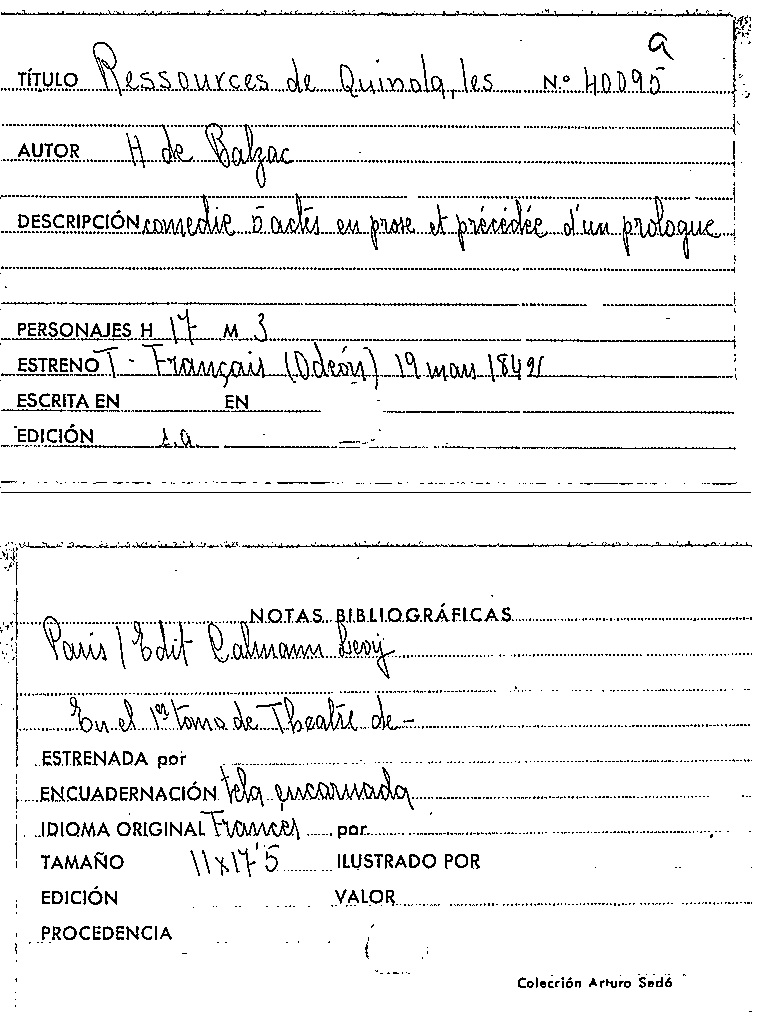 a
TÍTULO Ressources de Quinola, les N.º 40095
AUTOR H de Balzac
DESCRIPCIÓN comedie 5 actes en prose et précédée d'un prologue
PERSONAJES H 17 M 3
ESTRENO T - Français (Odeón) 19 mars 1842
ESCRITA EN EN
EDICIÓN s.a
NOTAS BIBLIOGRÁFICAS
Paris / Edit Calmann Levy
En el 1er tomo de Theatre de -
ESTRENADA por
ENCUADERNACIÓN tela encarnada
IDIOMA ORIGINAL Frances por
TAMAÑO 11x17'5 ILUSTRADO POR
EDICIÓN VALOR
PROCEDENCIA
Colección Arturo Sedó